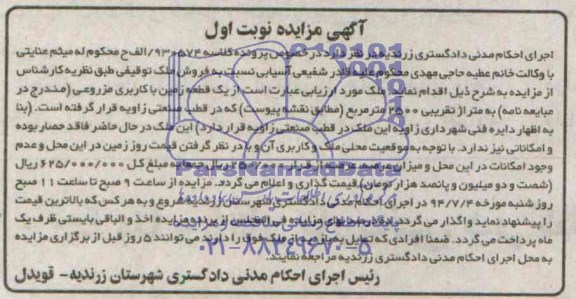 آگهی مزایده نوبت اول
اجرای احکام مدنی دادگستری زرندیه در نظر دارد در خصوص پرونده کلاسه ۹۳۰۵۷۴/الف ح محکوم له میثم عنایتی
با وکالت خانم عطیه حاجی مهدی محکوم علیه قادر شفیعی آسیابی نسبت به فروش ملک توقیفی طبق نظریه کارشناس
از مزایده به شرح ذیل اقدام نماید. ملک مورد ارزیابی عبارت است از یک قطعه زمین با کاربری مزروعی (مندرج در
مبایعه نامه) به متراژ تقریبی ۲۵۰۰ مترمربع (مطابق نقشه پیوست) که در قطب صنعتی زاویه قرار گرفته است. (بنا
به اظهار دایره فنی شهرداری زاویه این ملک در قطب صنعتی زاویه قرار دارد) این ملک در حال حاضر فاقد حصار بوده
و امکاناتی نیز ندارد. با توجه به موقعیت محلی ملک و کاربری آن و با در نظر گرفتن قیمت روز زمین در این محل و عدم
وجود امکانات در این محل و میزان عرضه عرصه از قرار ۲۵۰/۰۰۰ ریال جمعا به مبلغ کل ۶۲۵/۰۰۰/۰۰۰ ریال
(شصت و دو میلیون و پانصد هزار تومان) قیمت گذاری و اعلام می گردد. مزایده از ساعت ۹ صبح تا ساعت ۱۱ صبح
روز شنبه مورخه ۹۴/۷/۴ در اجرای احکام مدنی دادگستری شهرستان زرندیه شروع و به هر کس که بالاترین قیمت
را پیشنهاد نماید واگذار می گردد. ده درصد بهای مزایده فی المجلس از برنده مزایده اخذ و الباقی بایستی ظرف یک
ماه پرداخت می گردد. ضمنا افرادی که تمایل به بازدید از ملک فوق را دارند می توانند ۵ روز قبل از برگزاری مزایده
به محل اجرای احکام مدنی دادگستری زرندیه مراجعه نمایند.
رئیس اجرای احکام مدنی دادگستری شهرستان زرندیه - قویدل
ParsNamadData
پایگاه اطلاع رسانی مناقصه و مزایده
۰۲۱-۸۸۳۴۹۶۷۰-۵